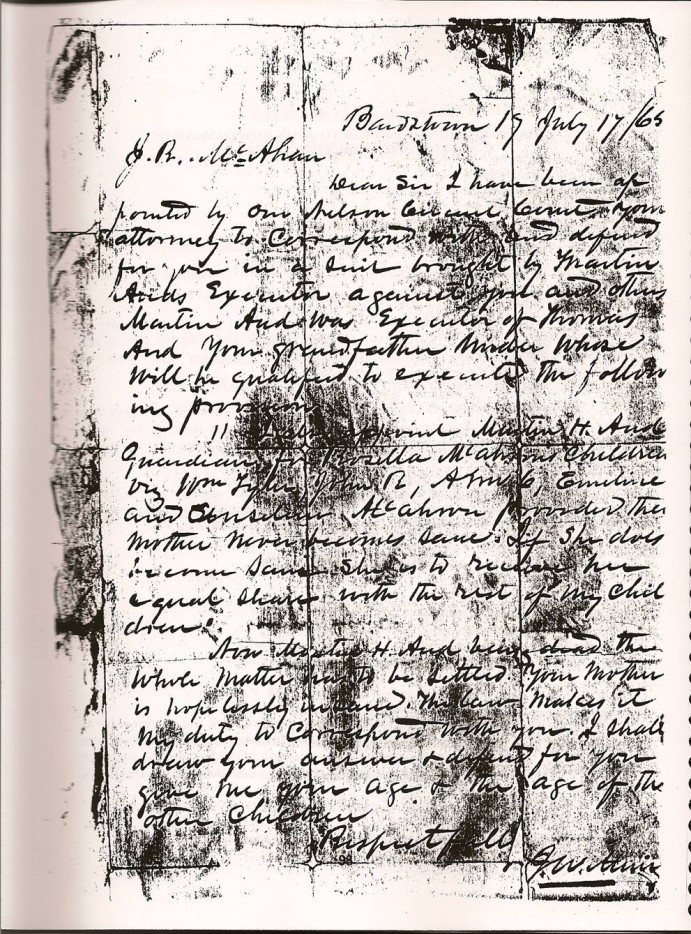 Bardstown Ky July 17/65
J. R. McAhan
Dear Sir I have been ap
pointed by our Nelson Circuit Court your
attorney to Correspond with and defend
for you in a Suit brought by Martin
Auds Executor against you and others
Martin Aud was Executor of Thomas
Aud Your grandfather Under Whose
Will he qualified to execute the follow
ing provision
appoint Martin H. Aud
Guardian for Rozilla McAhons Children
viz Wm Tyler, John R, Emeline
and McAhron provided their
Mother Never becomes Sane. If She does
become Sane She is to receive her
equal Share with the rest of my Chil
dren"
Now Martin H. Aud being dead the
Whole Matter has to be Settled. Your Mother
is hopelessly insane. The law Makes it
My duty to Correspond with you. I Shall
draw your answer & defend for you
give me your age & the age of the
other Children
Respectfully
J. W.